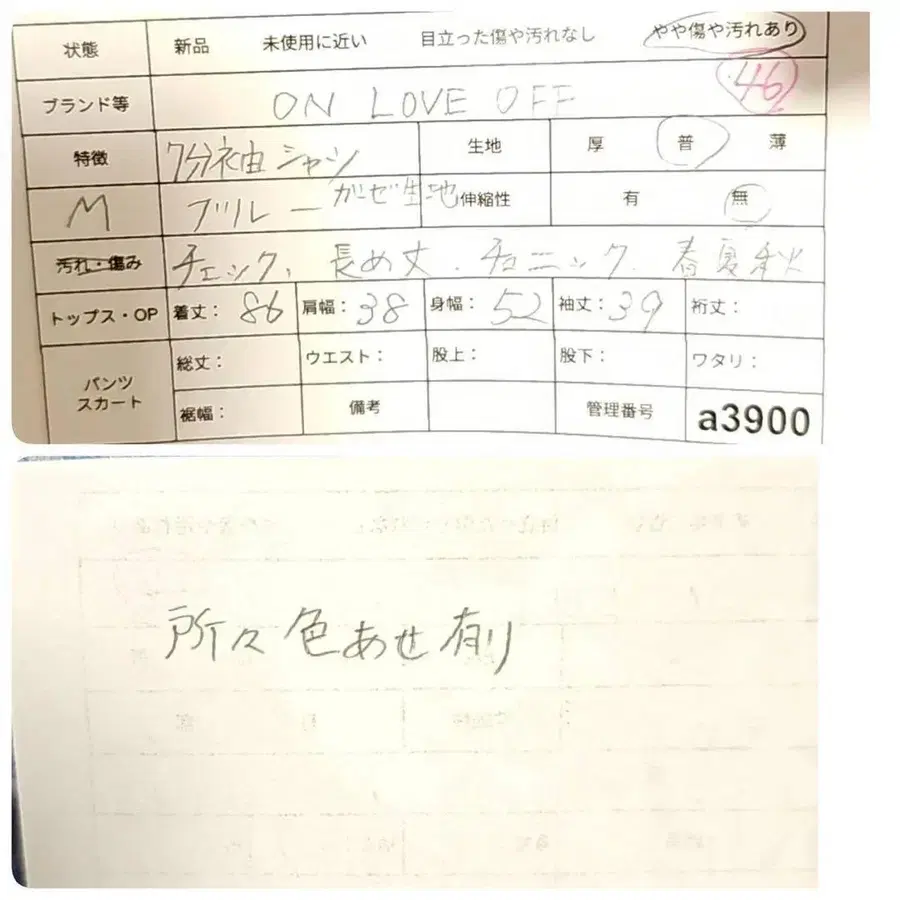 状態 新品 未使用に近い 目立った傷や汚れなし やや傷や汚れあり
ブランド等 ON LOVE OFF 46
特徴 7分袖シャツ 生地 厚 普 薄
M ブルー ガーゼ生地 伸縮性 有 無
汚れ・傷み チェック、長め丈.チュニック.春夏秋
トップス・OP 着丈:86 肩幅:38 身幅:52 袖丈:39 裄丈:
パンツ スカート 総丈: ウエスト: 股上: 股下: ワタリ:
裾幅: 備考 管理番号 a3900
所々色あせ有り